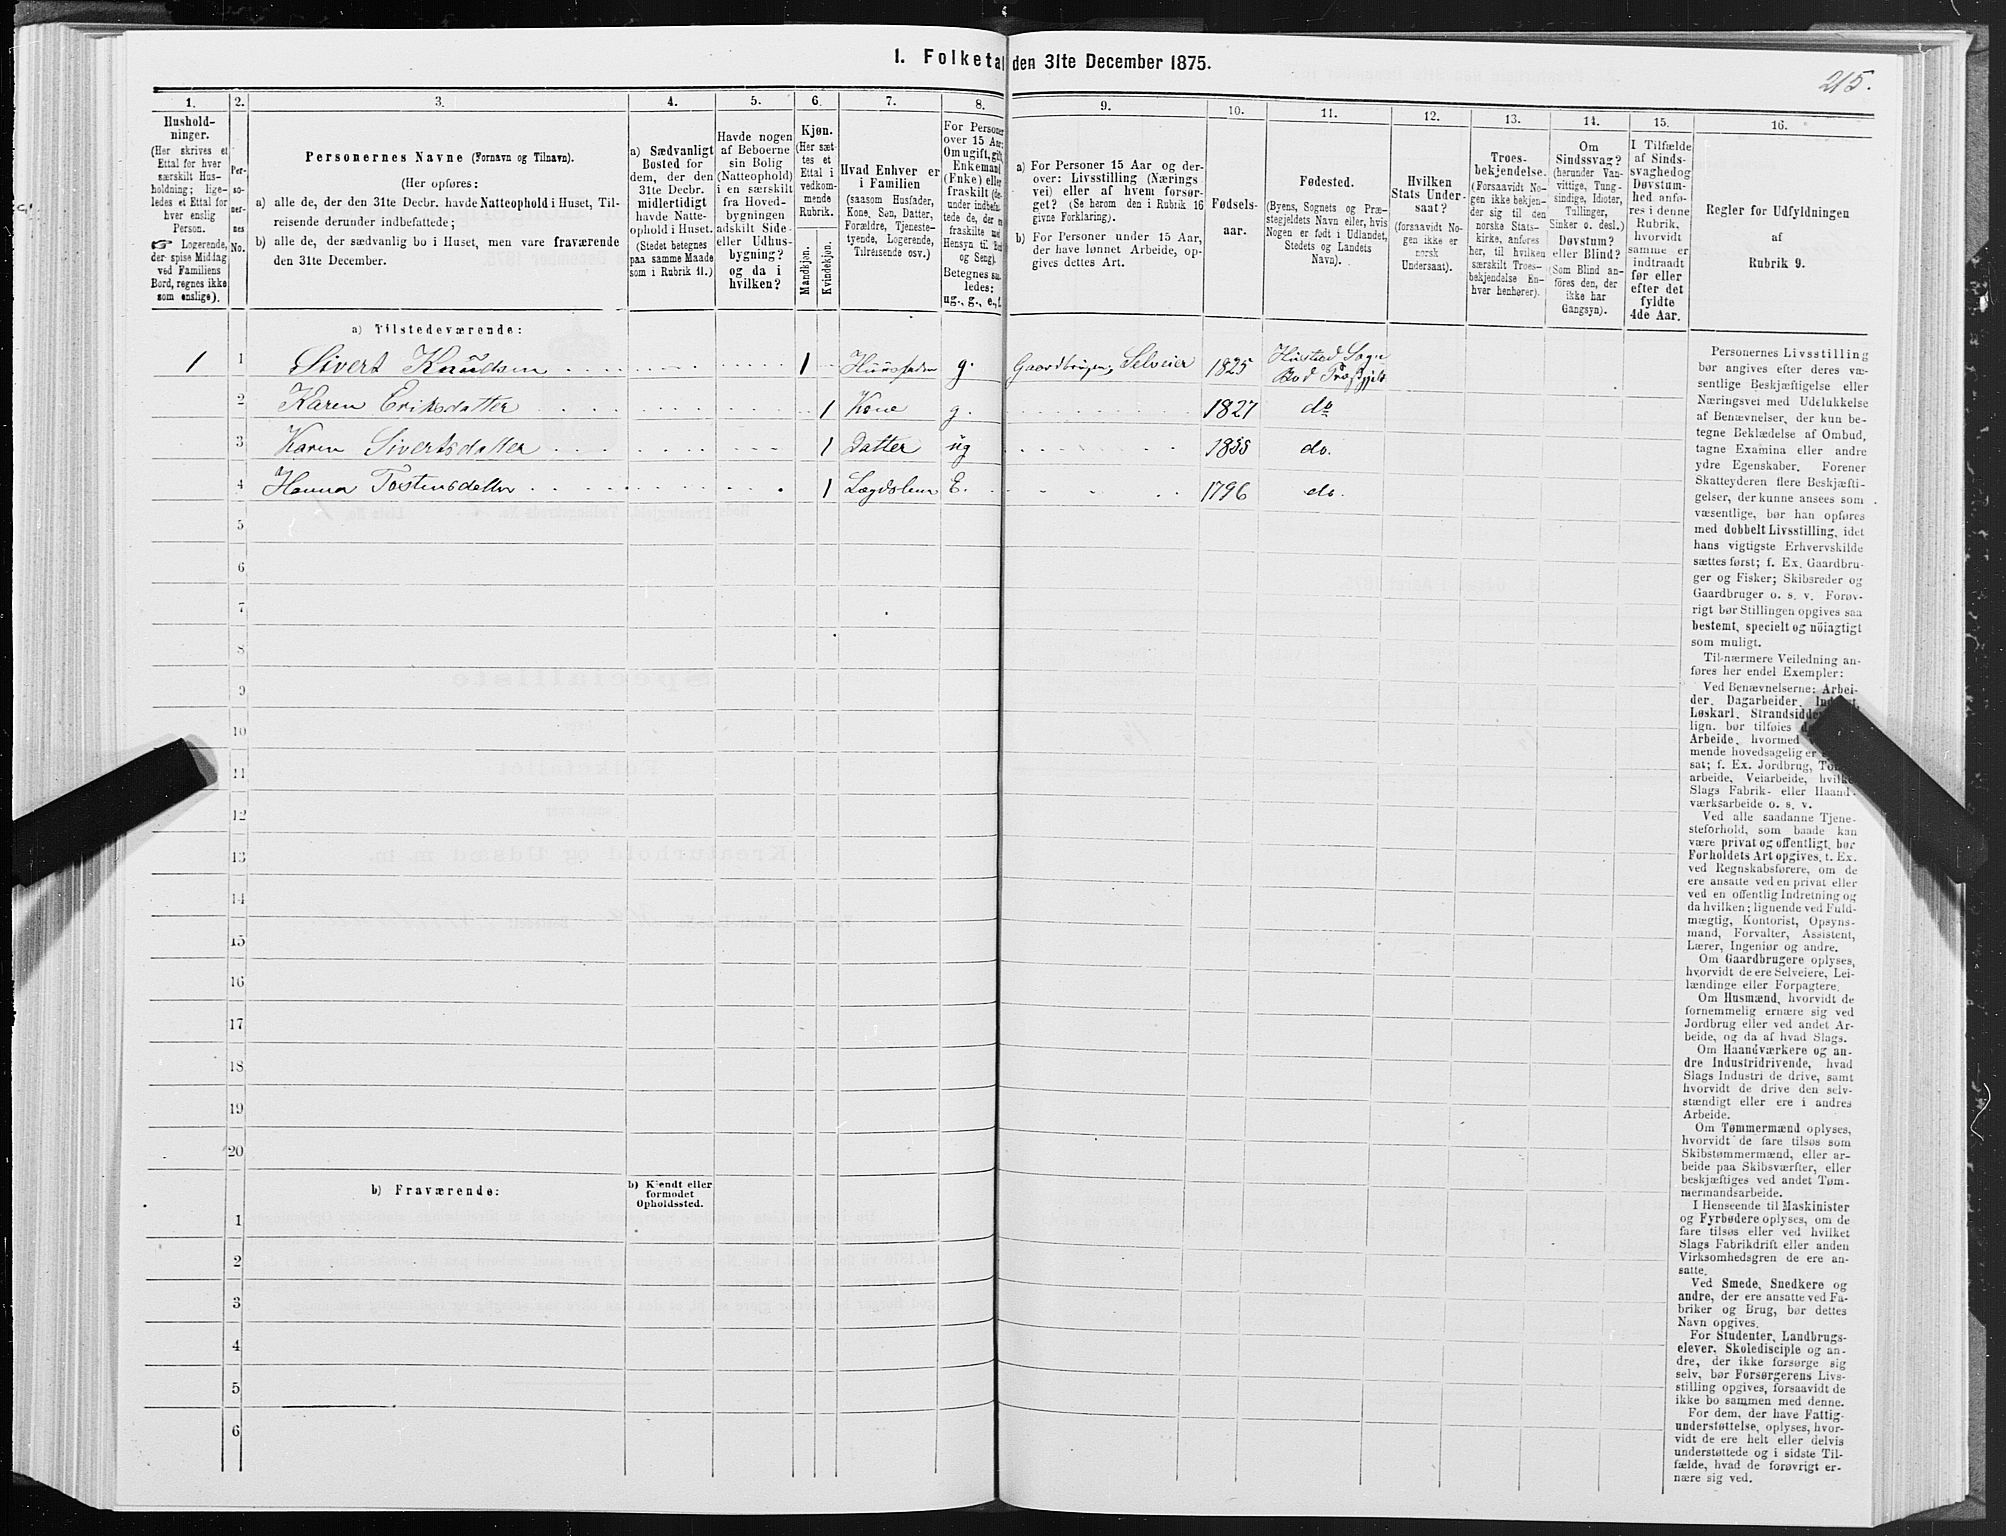 1. Folketal den 31te December 1875.
215.
1.
Hushold-
ninger.
(Her skrives et
Ettal for hver
særskilt Hus-
holdning; lige-
ledes et Ettal for
hver enslig
Person.
☞ Logerende,
der spise Middag
ved Familiens
Bord, regnes ikke
som enslige).
2.
Per-
so-
ner-
nes
No.
3.
Personernes Navne (Fornavn og Tilnavn).
(Her opføres:
a) alle de, der den 31te Decbr. havde Natteophold i Huset, Til-
reisende derunder indbefattede;
b) alle de, der sædvanlig bo i Huset, men vare fraværende
den 31te December.
4.
a) Sædvanligt
Bosted for
dem, der den
31te Decbr.
midlertidigt
havde Natte-
ophold i Huset.
(Stedet betegnes
paa samme Maade
som i Rubrik 11.)
5.
Havde nogen
af Beboerne
sin Bolig
(Natteophold)
i en særskilt
fra Hoved-
bygningen
adskilt Side-
eller Udhus-
bygning?
og da i
hvilken?
6.
Kjøn.
(Her sæt-
tes et
Ettal i
vedkom-
mende
Rubrik.
Mandkjøn.
Kvindekjøn.
7.
Hvad Enhver er
i Familien
(saasom Husfader,
Kone, Søn, Datter,
Forældre, Tjeneste-
tyende, Logerende,
Tilreisende osv.)
8.
For Personer
over 15 Aar:
Om ugift, gift,
Enkemand
(Enke) eller
fraskilt (der-
under indbefat-
tede de, der ere
fraskilte med
Hensyn til Bord
og Seng).
Betegnes saa-
ledes:
ug., g., e., f.
9.
a) For Personer 15 Aar og der-
over: Livsstilling (Nærings-
vei) eller af hvem forsør-
get? (Se herom den i Rubrik 16
givne Forklaring).
b) For Personer under 15 Aar,
der have lønnet Arbeide, op-
gives dettes Art.
10.
Fødsels-
aar.
11.
Fødested.
(Byens, Sognets og Præ-
stegjeldets Navn eller, hvis
Nogen er født i Udlandet,
Stedets og Landets
Navn).
12.
Hvilken
Stats Under-
saat?
(forsaavidt No-
gen ikke er
norsk
Undersaat).
13.
Troes-
bekjendelse.
(Forsaavidt No-
gen ikke bekjen-
der sig til den
norske Stats-
kirke, anføres
her, til hvilken
særskilt Troes-
bekjendelse En-
hver henhører).
14.
Om
Sindssvag?
(herunder Van-
vittige, Tung-
sindige, Idioter,
Tullinger,
Sinker o. desl.)
Døvstum?
eller Blind?
(Som Blind an-
føres den, der
ikke har
Gangsyn).
15.
I Tilfælde
af Sinds-
svaghed og
Døvstum-
hed anfø-
res i denne
Rubrik,
hvorvidt
samme er
indtraadt
før eller
efter det
fyldte
4de Aar.
16.
Regler for Udfyldningen
af
Rubrik 9.
a) Tilstedeværende:
1 1 Sivert Knudsen 1 Huusfader g. Gaardbruger, Selveier 1825 Hustad Sogn
Bod Præstgjeld
2 Karen Eriksdatter 1 Kone g. 1827 do
3 Karen Sivertsdatter 1 Datter ug 1855 do.
4 Hanna Tostensdatter 1 Lægdslem E. 1796 do.
5
6
7
8
9
10
11
12
13
14
15
16
17
18
19
20
b) Fraværende:
b) Kjendt eller
formodet
Opholdssted.
1
2
3
4
5
6
Personernes Livsstilling
bør angives efter deres væ-
sentlige Beskjæftigelse eller
Næringsvei med Udelukkelse
af Benævnelser, der kun be-
tegne Beklædelse af Ombud,
tagne Examina eller andre
ydre Egenskaber. Forener
Skatteyderen flere Beskjæfti-
gelser, der kunne ansees som
væsentlige, bør han opføres
med dobbelt Livsstilling, idet
hans vigtigste Erhvervskilde
sættes først; f. Ex. Gaardbru-
ger og Fisker; Skibsreder og
Gaardbruger o. s. v. Forøv-
rigt bør Stillingen opgives saa
bestemt, specielt og nöiagtigt
som muligt.
Til nærmere Veiledning an-
føres her endel Exempler:
Ved Benævnelserne: Arbei-
der, Dagarbeider,
Løskarl, Strandsidder
lign. bør tilføies
Arbeide, hvormed
mende hovedsagelig er
sat; f. Ex. Jordbrug,
arbeide, Veiarbeide,
Slags Fabrik- eller Haand-
værksarbeide o. s. v.
Ved alle saadanne Tjene-
steforhold, som baade kan
være privat og offentligt, bør
Forholdets Art opgives, t. Ex.
ved Regnskabsførere, om de
ere ansatte ved en privat eller
ved en offentlig Indretning og
da hvilken; lignende ved Fuld-
mægtig, Kontorist, Opsyns-
mand, Forvalter, Assistent,
Lærer, Ingeniør og andre.
Om Gaardbrugere oplyses,
hvorvidt de ere Selveiere, Lei-
lændinge eller Forpagtere.
Om Husmænd, hvorvidt de
fornemmelig ernære sig ved
Jordbrug eller ved andet Ar-
beide, og da af hvad Slags.
Om Haandværkere og an-
dre Industridrivende, hvad
Slags Industri de drive, samt
hvorvidt de drive den selv-
stændigt eller ere i andres
Arbeide.
Om Tømmermænd oplyses,
hvorvidt de fare tilsøs som
Skibstømmermænd, eller ar-
beide paa Skibsværfter, eller
beskjæftiges ved andet Tøm-
mermandsarbeide.
I Henseende til Maskinister
og Fyrbødere oplyses, om de
fare tilsøs eller ved hvilket
Slags Fabrikdrift eller anden
Virksomhedsgren de ere an-
satte.
Ved Smede, Snedkere og
andre, der ere ansatte ved Fa-
briker og Brug, bør dettes
Navn opgives.
For Studenter, Landbrugs-
elever, Skoledisciple og an-
dre, der ikke forsørge sig
selv, bør Forsørgerens Livs-
stilling opgives, forsaavidt de
ikke bo sammen med denne.
For dem, der have Fattig-
understøttelse, oplyses, hvor-
vidt de ere helt eller delvis
understøttede og i sidste Til-
fælde, hvad de forøvrigt er-
nære sig ved.